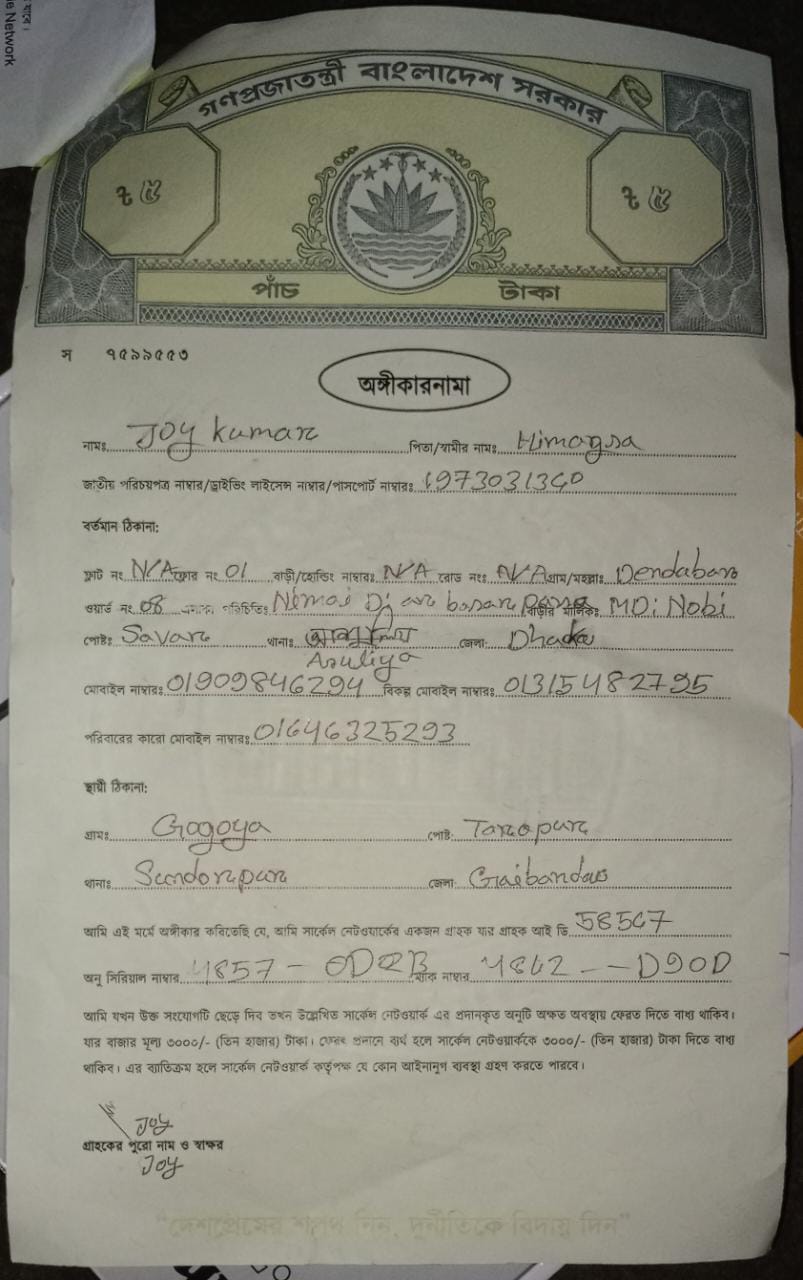 গণপ্রজাতন্ত্রী বাংলাদেশ সরকার
৳ ৫ ৳ ৫
পাঁচ টাকা
স ৭৫৯৯৫৫৩
অঙ্গীকারনামা
নামঃ Joy kumar পিতা/স্বামীর নামঃ Himagsa
জাতীয় পরিচয়পত্র নাম্বার/ড্রাইভিং লাইসেন্স নাম্বার/পাসপোর্ট নাম্বারঃ 1973031340
বর্তমান ঠিকানা:
ফ্লাট নং N/A ফ্লোর নং 01 বাড়ী/হোল্ডিং নাম্বারঃ N/A রোড নংঃ N/A গ্রাম/মহল্লাঃ Dendabar
ওয়ার্ড নং 08 এলাকা পরিচিতিঃ Nemai বাড়ীর মালিকঃ MD: Nobi
পোষ্টঃ Savar থানাঃ জেলা: Dhaka
Asuliya
মোবাইল নাম্বারঃ 01909846294 বিকল্প মোবাইল নাম্বারঃ 01315482795
পরিবারের কারো মোবাইল নাম্বারঃ 01646325293
স্থায়ী ঠিকানা:
গ্রামঃ Gogoya পোষ্ট: Tarapur
থানাঃ Sundorpur জেলা: Gaibanda
আমি এই মর্মে অঙ্গীকার করিতেছি যে, আমি সার্কেল নেটওয়ার্কের একজন গ্রাহক যার গ্রাহক আই ডি 58547
অনু সিরিয়াল নাম্বার 4857 - ম্যাক নাম্বার 4862 -- D90D
আমি যখন উক্ত সংযোগটি ছেড়ে দিব তখন উল্লেখিত সার্কেল নেটওয়ার্ক এর প্রদানকৃত অনুটি অক্ষত অবস্থায় ফেরত দিতে বাধ্য থাকিব।
যার বাজার মূল্য ৩০০০/- (তিন হাজার) টাকা। ফেরৎ প্রদানে ব্যর্থ হলে সার্কেল নেটওয়ার্ককে ৩০০০/- (তিন হাজার) টাকা দিতে বাধ্য
থাকিব। এর ব্যতিক্রম হলে সার্কেল নেটওয়ার্ক কর্তৃপক্ষ যে কোন আইনানুগ ব্যবস্থা গ্রহণ করতে পারবে।
Joy
গ্রাহকের পুরো নাম ও স্বাক্ষর
Joy
"দেশপ্রেমের শপথ নিন, দুর্নীতিকে বিদায় দিন"